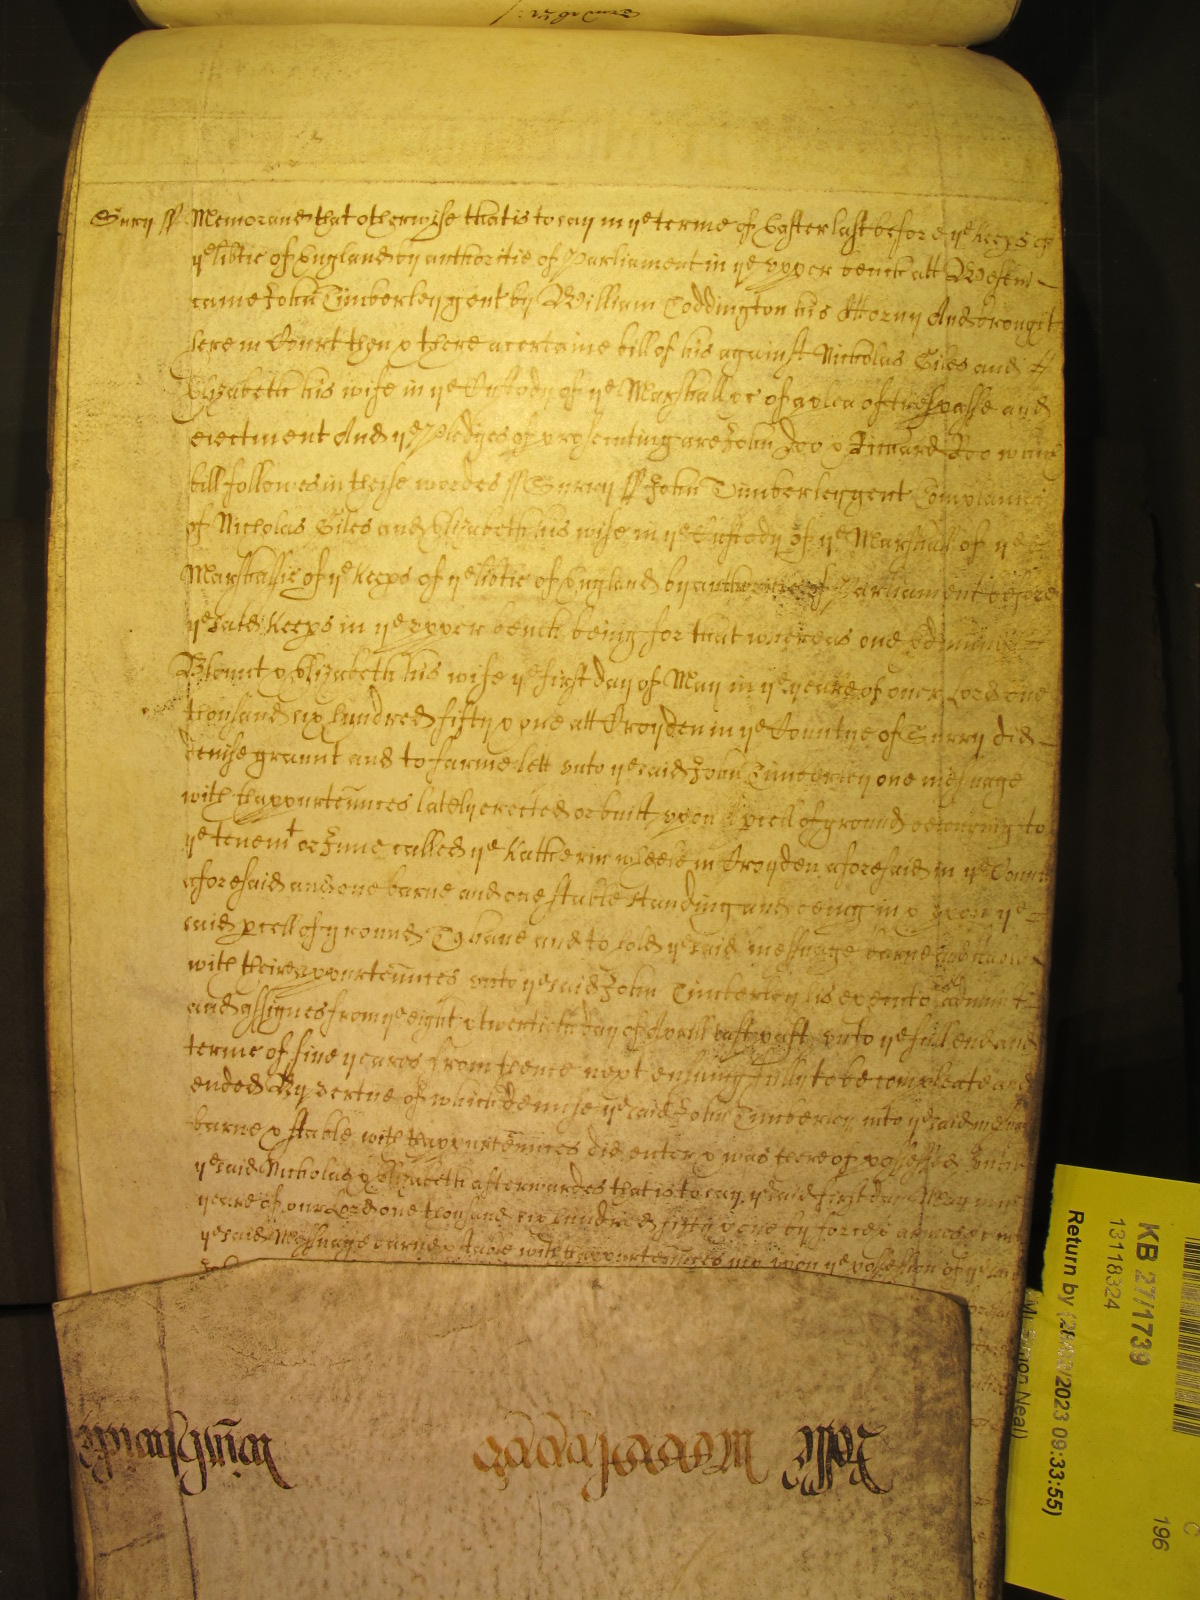 Surry ss Memorand that otherwise that is to say in ye terme of Easter last before ye Keeps of
ye libtie of England by authoritie of Parliament in ye upper bench att Westm
came John Timberley gent by William Coddington his Attorny And brought
here in Court then & there a certaine bill of his against Nicholas Giles and
Elizabeth his wife in ye Custody of ye Marshall &c of a plea of trespasse and
eiectment And ye Pledges of prosecuting are John Doo & Richard Roo which
bill followes in theise wordes ss Surry ss John Timberley gent Complaines
of Nicholas Giles and Elizabeth his wife in ye Custody of ye Marshall of ye
Marshalsie of ye Keeps of ye libtie of England by authoritie of Parliament before
ye said Keeps in ye upper bench being for that whereas one Edmund
Blount & Elizabeth his wife ye first day of May in ye yeare of over Lord one
thousand six hundred fifty & one att Croyden in ye Countye of Surry did
demise graunt and to farme lett unto ye said John Timberley one messuage
with thappurtennces lately erected or built upon a pcell of ground belonging to
ye tenemt or Inne called ye Katherin wheele in Croyden aforesaid in ye County
aforesaid and one barne and one stable standing and being in & upon ye
said pcell of ground To have and to hold ye said messuage barne and stable
with their appurtennces unto ye said John Timberley his executors administ
and assignes from ye eight & twentieth day of Aprill last past unto ye full end and
terme of five yeares from thence next ensuing fully to be compleate and
ended By vertue of which demise ye said John Timberley into ye said messuage
barne & stable with thappurtennces did enter & was thereof possessed Untill
ye said Nicholas & Elizabeth afterwardes that is to say ye said first day of May in ye
yeare of our Lord one thousand six hundred fifty & one by force & armes &c into
ye said Messuage barne & stable with thappurtennces in & upon ye possession of ye said
KB 27/1739
13118324
Return by (2023 09:33:55)
Simon Neal)
196